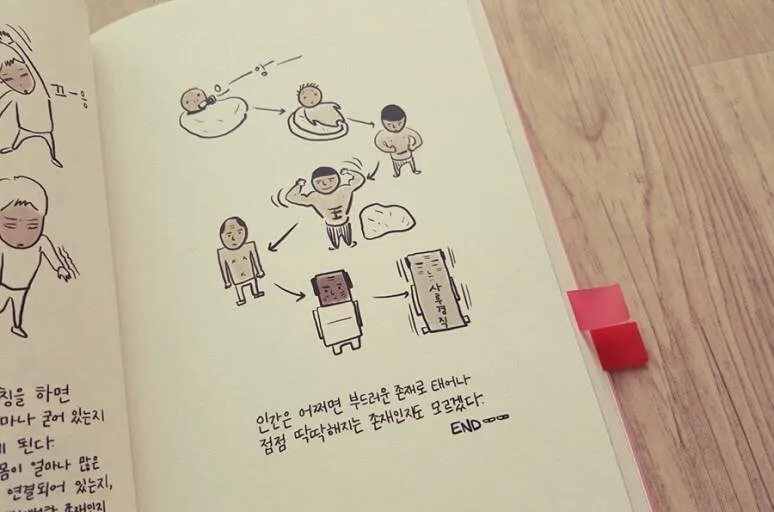 끄-응
칭을 하면
마나 굳어 있는지
게 된다.
몸이 얼마나 많은
연결되어 있는지,
존재인지
으 - 앙 -
王
사후경직
인간은 어쩌면 부드러운 존재로 태어나
점점 딱딱해지는 존재인지도 모르겠다.
END